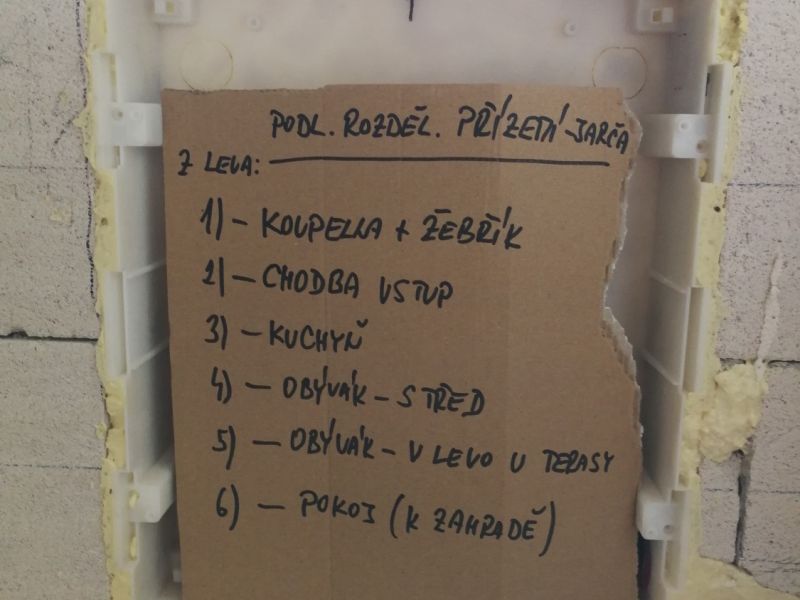 PODL. ROZDĚL. PŘÍZEMÍ-JARČA
Z LEVA:
1) - KOUPELNA + ŽEBŘÍK
2) - CHODBA VSTUP
3) - KUCHYŇ
4) - OBÝVÁK - STŘED
5) - OBÝVÁK - V LEVO U TERASY
6) - POKOJ (K ZAHRADĚ)